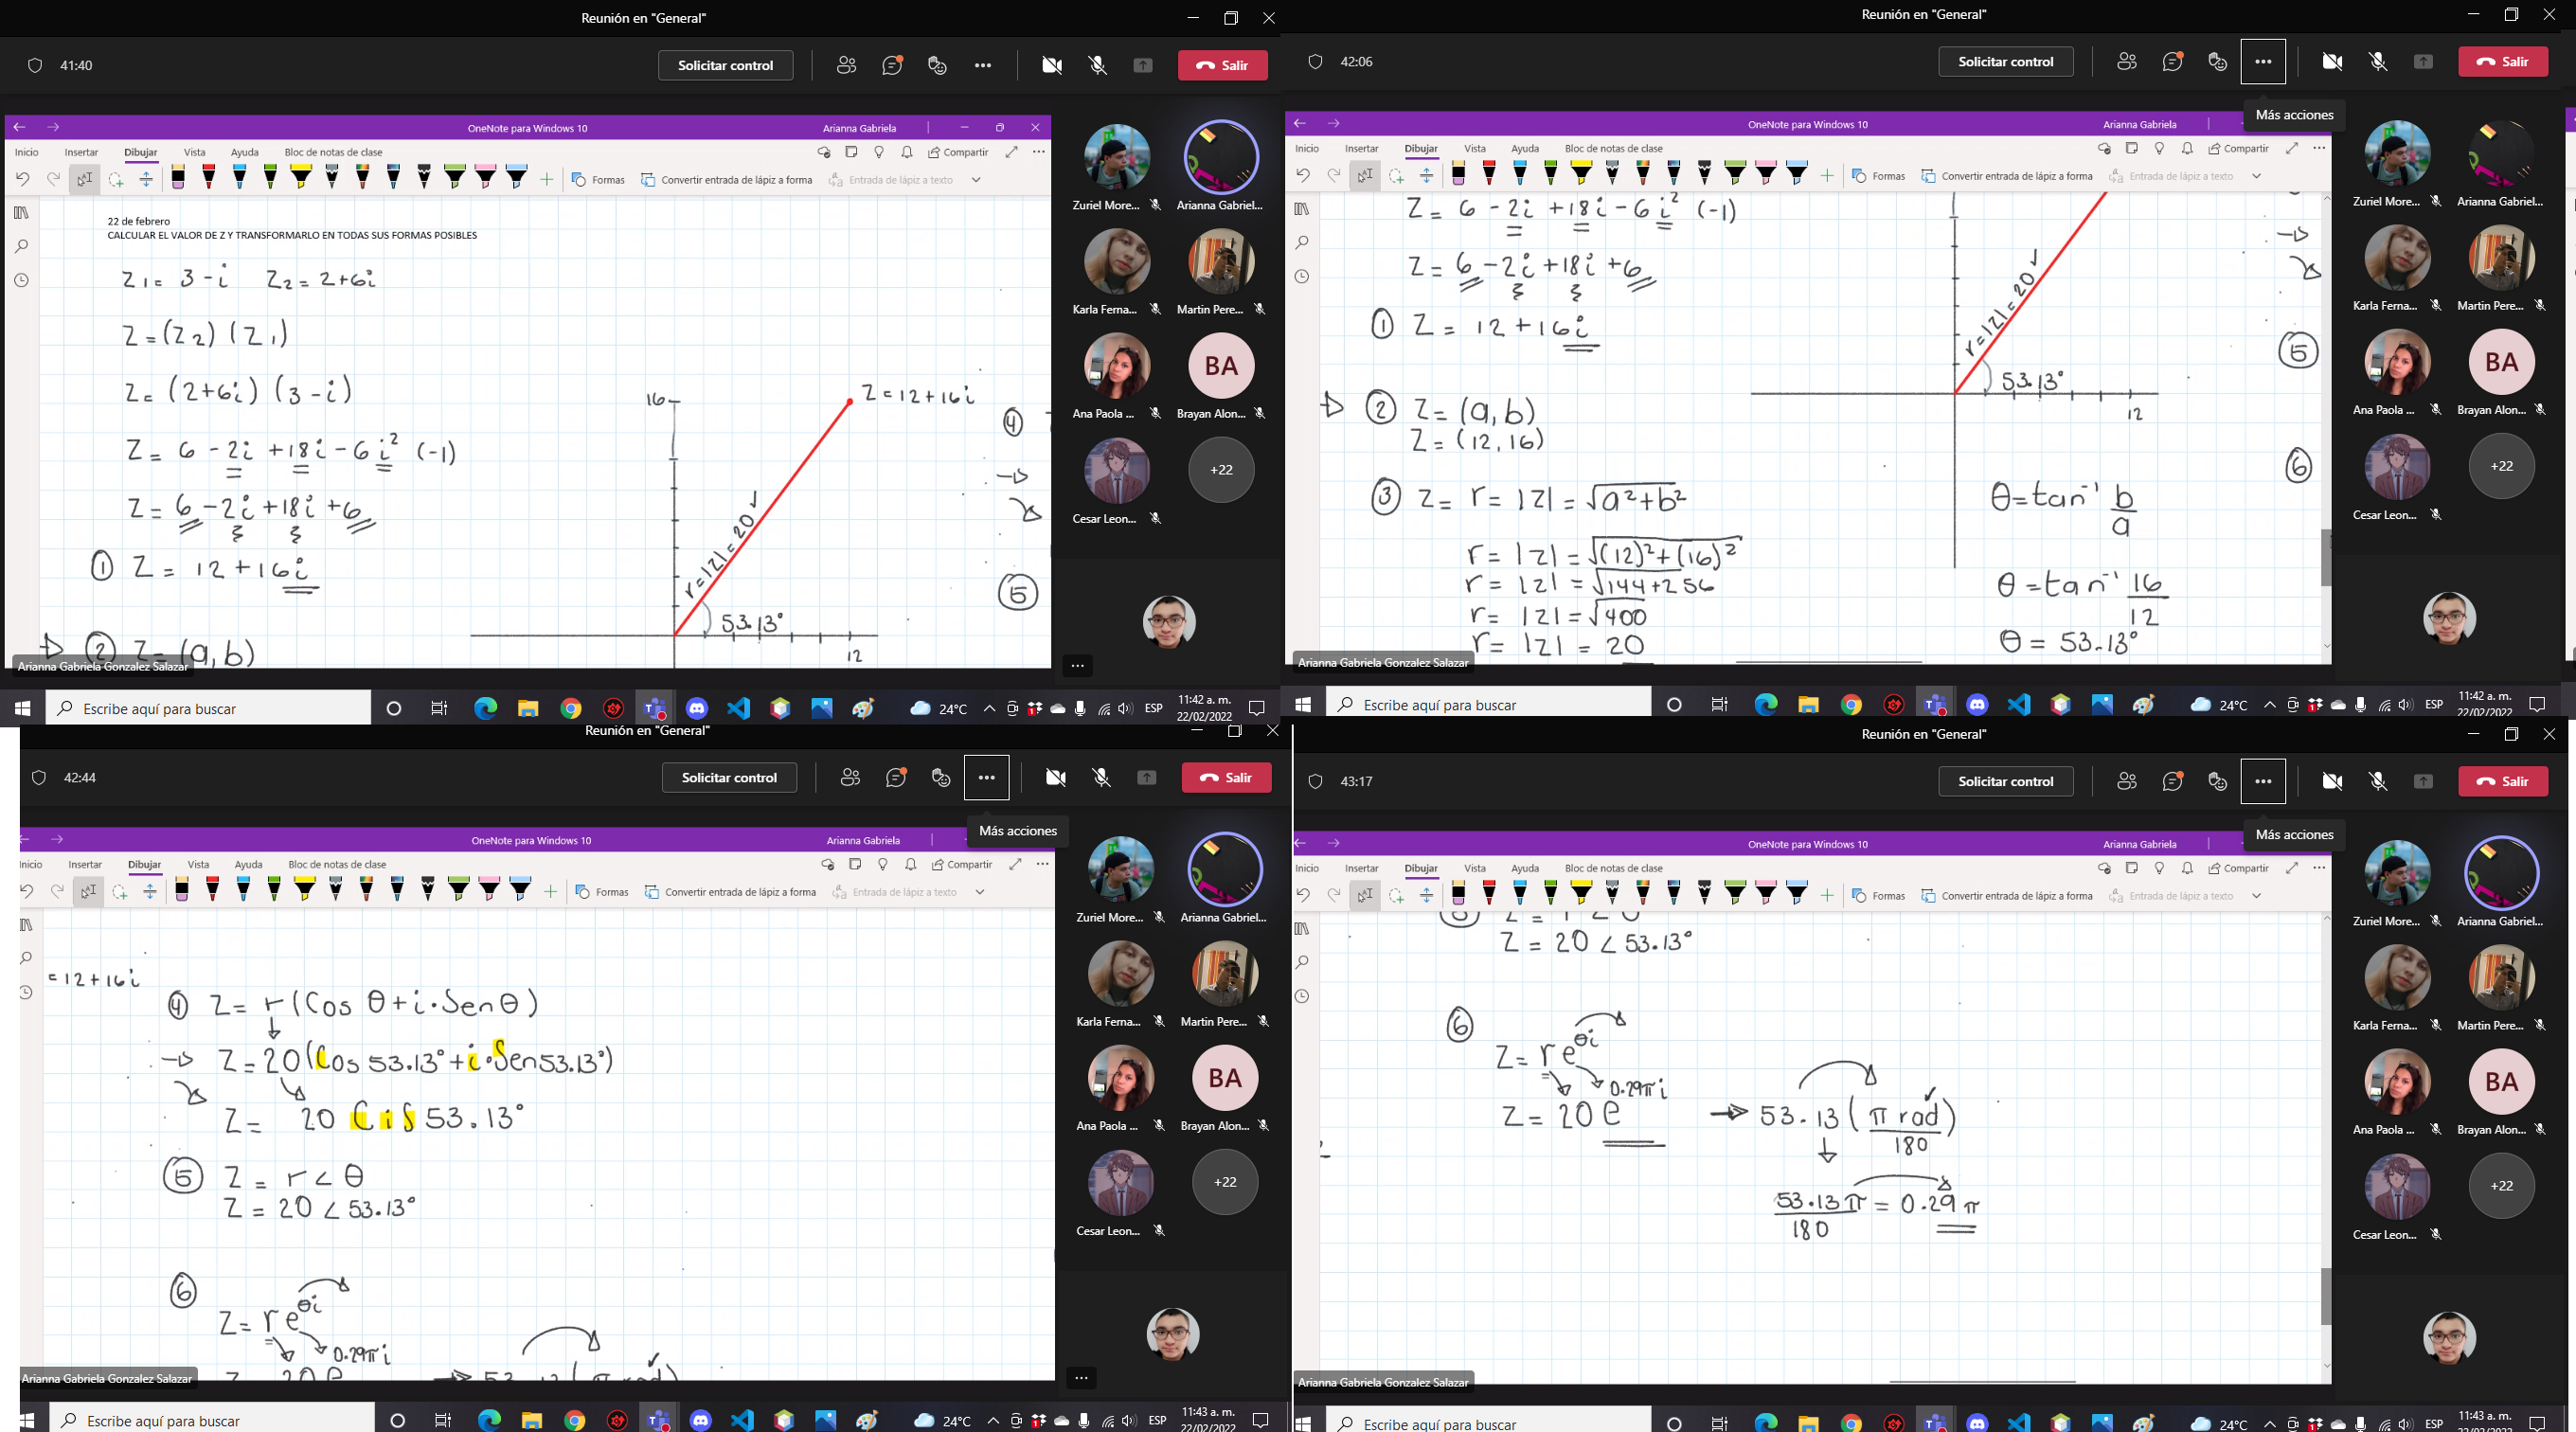 Reunión en "General"
41:40
Solicitar control
Salir
OneNote para Windows 10
Arianna Gabriela
Inicio Insertar Dibujar Vista Ayuda Bloc de notas de clase
Compartir
Formas Convertir entrada de lápiz a forma Entrada de lápiz a texto
22 de febrero
CALCULAR EL VALOR DE Z Y TRANSFORMARLO EN TODAS SUS FORMAS POSIBLES
Z1= 3-i Z2= 2+6i
Z=(Z2) (Z1)
Z= (2+6i) (3-i)
Z= 6 -2i +18i -6i² (-1)
Z= 6 -2i +18i +6
① Z= 12 +16i
② Z= (a,b)
16
Z=12+16i
r=|z|=20
53.13°
12
④
⑤
Zuriel More...
Arianna Gabriel...
Karla Ferna...
Martin Pere...
Ana Paola ...
BA
Brayan Alon...
+22
Cesar Leon...
Arianna Gabriela Gonzalez Salazar
Escribe aquí para buscar
24°C
ESP
11:42 a. m.
22/02/2022
Reunión en "General"
42:06
Solicitar control
Salir
Más acciones
OneNote para Windows 10
Arianna Gabriela
Inicio Insertar Dibujar Vista Ayuda Bloc de notas de clase
Compartir
Formas Convertir entrada de lápiz a forma Entrada de lápiz a texto
Z= 6 -2i +18i -6i² (-1)
Z= 6 -2i +18i +6
① Z= 12 +16i
② Z= (a,b)
Z= (12,16)
③ Z= r= |z| = √a²+b²
r= |z| = √(12)²+(16)²
r= |z| = √144+256
r= |z| = √400
r= |z| = 20
r=|z|=20
53.13°
12
θ=tan⁻¹ b/a
θ=tan⁻¹ 16/12
θ= 53.13°
⑤
⑥
Zuriel More...
Arianna Gabriel...
Karla Ferna...
Martin Pere...
Ana Paola ...
BA
Brayan Alon...
+22
Cesar Leon...
Arianna Gabriela Gonzalez Salazar
Escribe aquí para buscar
24°C
ESP
11:42 a. m.
22/02/2022
Reunión en "General"
42:44
Solicitar control
Salir
Más acciones
OneNote para Windows 10
Arianna Gabriela
Inicio Insertar Dibujar Vista Ayuda Bloc de notas de clase
Compartir
Formas Convertir entrada de lápiz a forma Entrada de lápiz a texto
=12+16i
④ Z= r(Cos θ+i·Senθ)
Z=20(Cos 53.13°+i·Sen53.13°)
Z= 20 CiS 53.13°
⑤ Z= r<θ
Z= 20 < 53.13°
⑥
Z= re^θi
0.29πi
Zuriel More...
Arianna Gabriel...
Karla Ferna...
Martin Pere...
Ana Paola ...
BA
Brayan Alon...
+22
Cesar Leon...
Arianna Gabriela Gonzalez Salazar
Escribe aquí para buscar
24°C
ESP
11:43 a. m.
22/02/2022
Reunión en "General"
43:17
Solicitar control
Salir
Más acciones
OneNote para Windows 10
Arianna Gabriela
Inicio Insertar Dibujar Vista Ayuda Bloc de notas de clase
Compartir
Formas Convertir entrada de lápiz a forma Entrada de lápiz a texto
Z= 20 < 53.13°
⑥
Z= re^θi
Z= 20 e^0.29πi
53.13 (π rad/180)
53.13π/180 = 0.29π
Zuriel More...
Arianna Gabriel...
Karla Ferna...
Martin Pere...
Ana Paola ...
BA
Brayan Alon...
+22
Cesar Leon...
Arianna Gabriela Gonzalez Salazar
Escribe aquí para buscar
24°C
ESP
11:43 a. m.